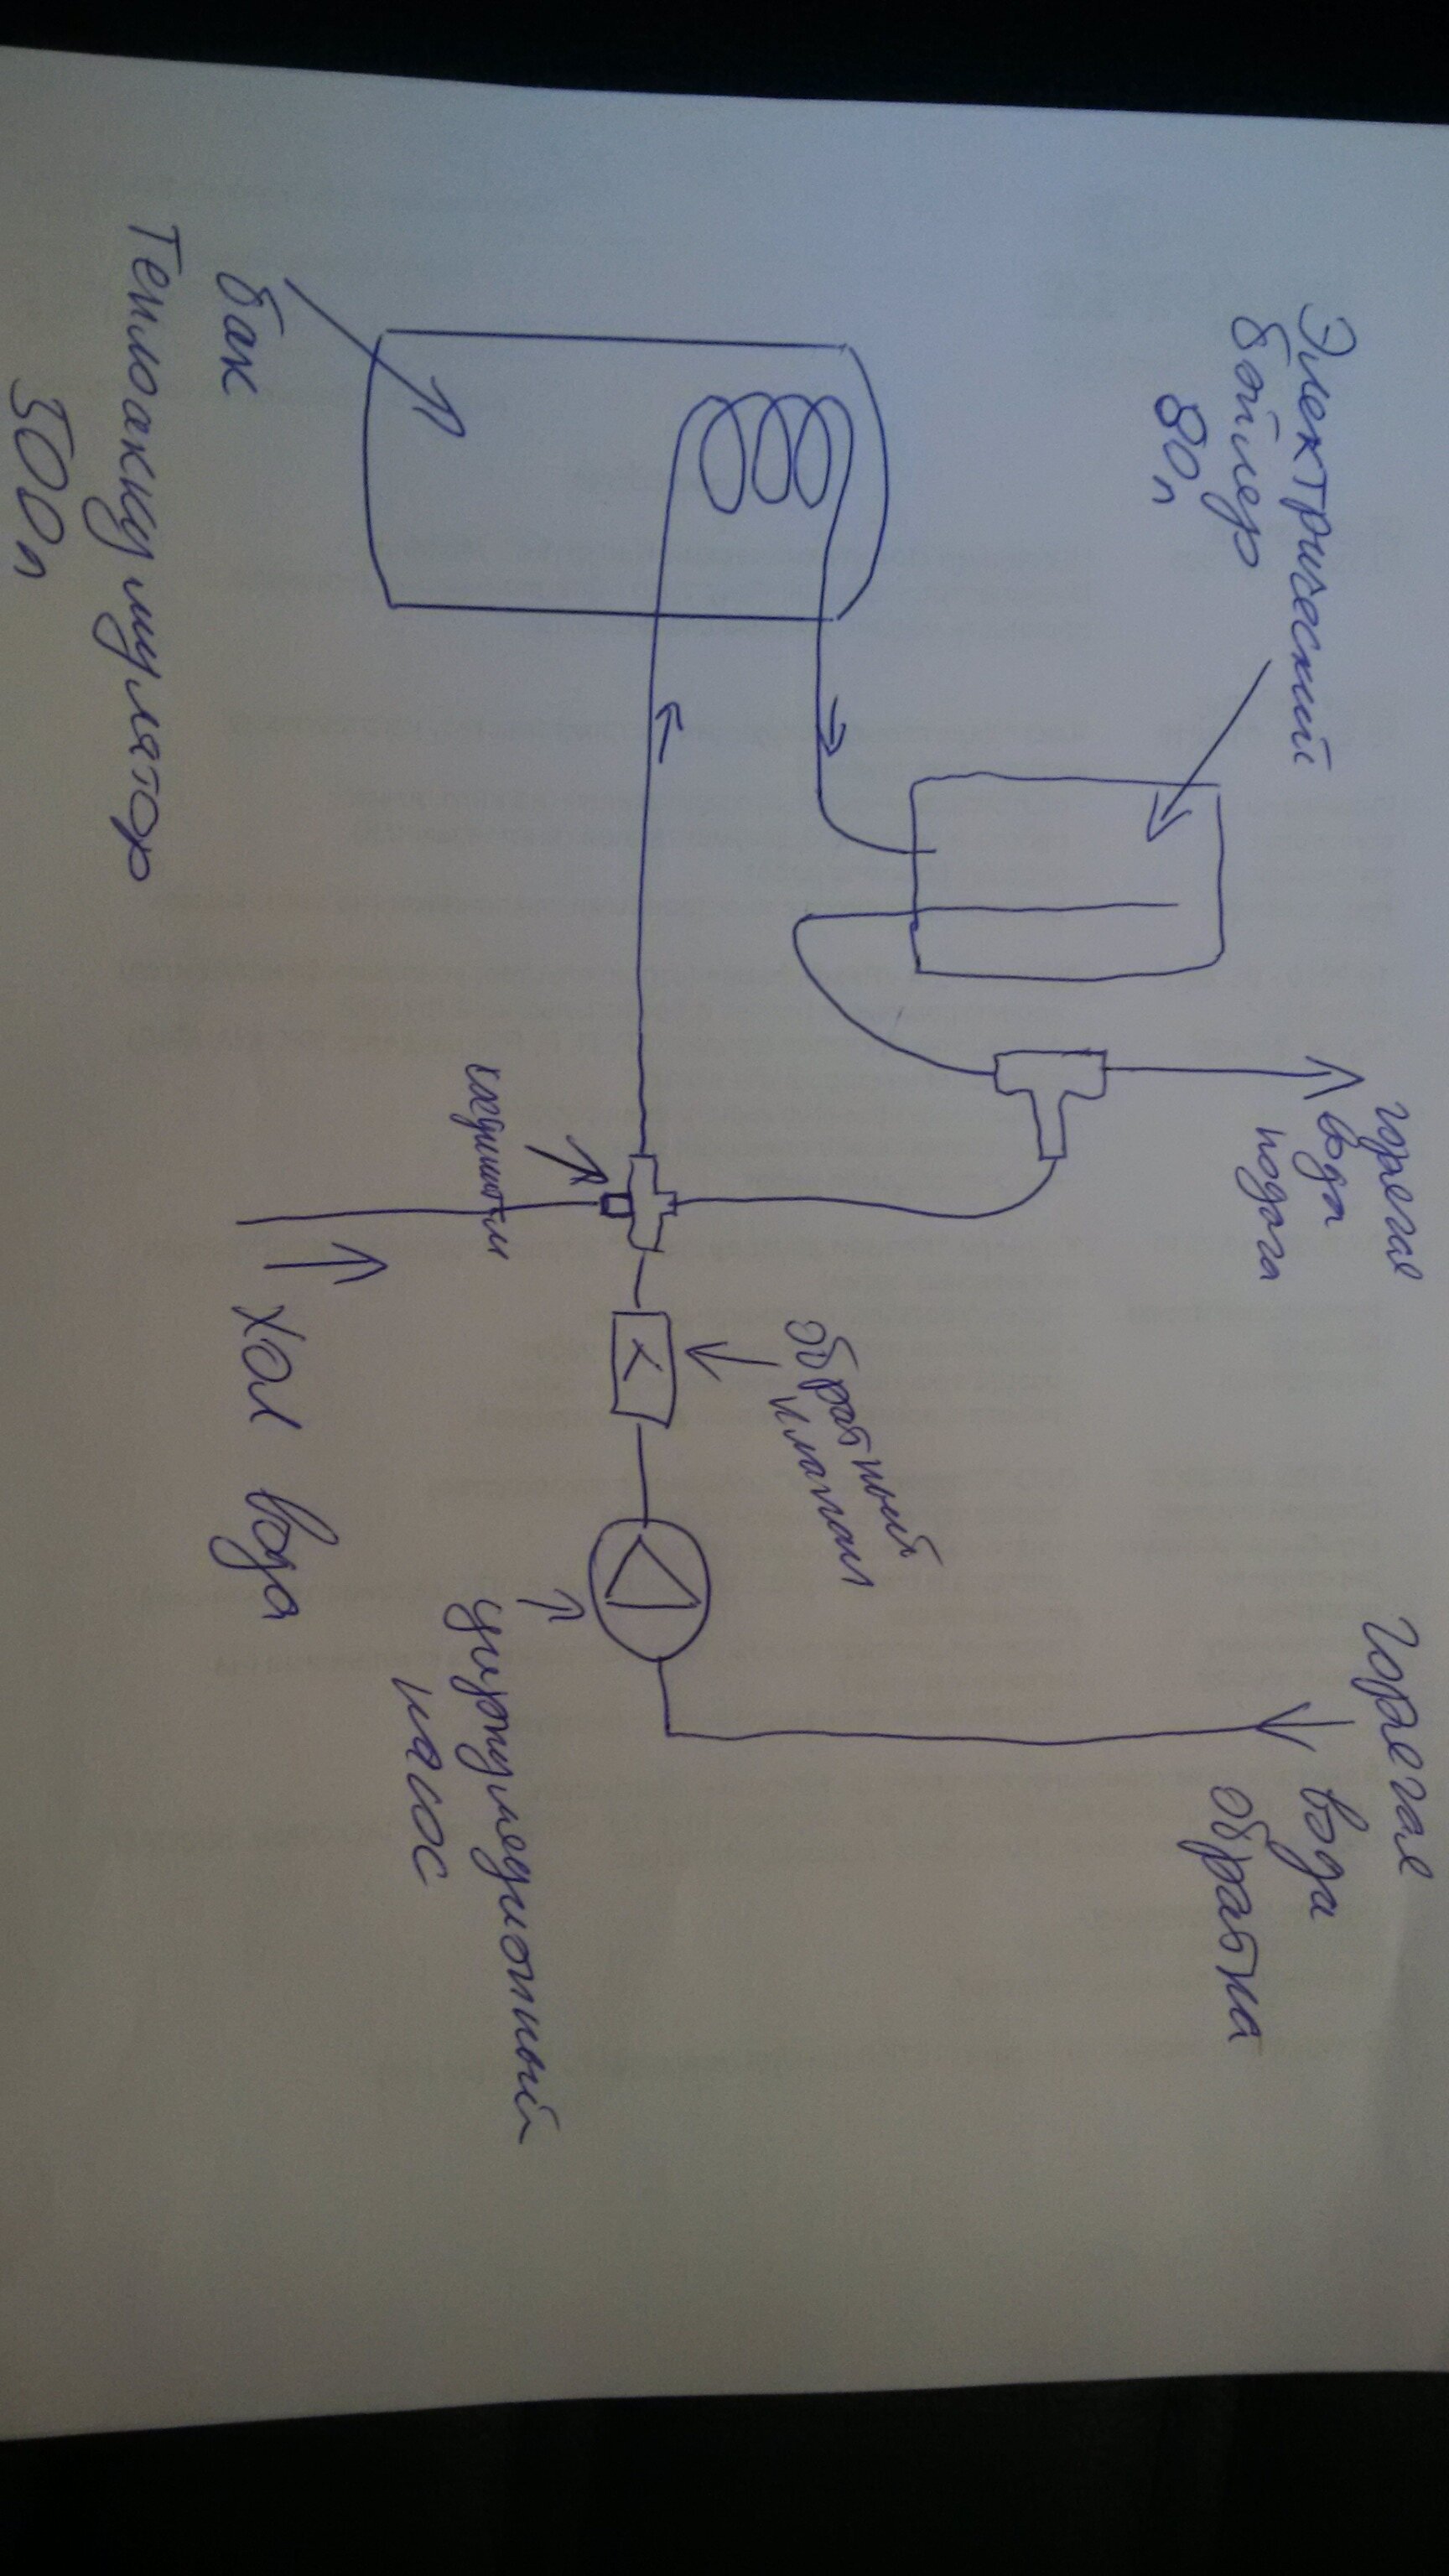 Электрический
бойлер
80 л
бак
Теплоаккумулятор
500 л
горячая
вода
подача
обратный
клапан
Хол вода
циркуляционный
насос
Горячая
вода
обратка